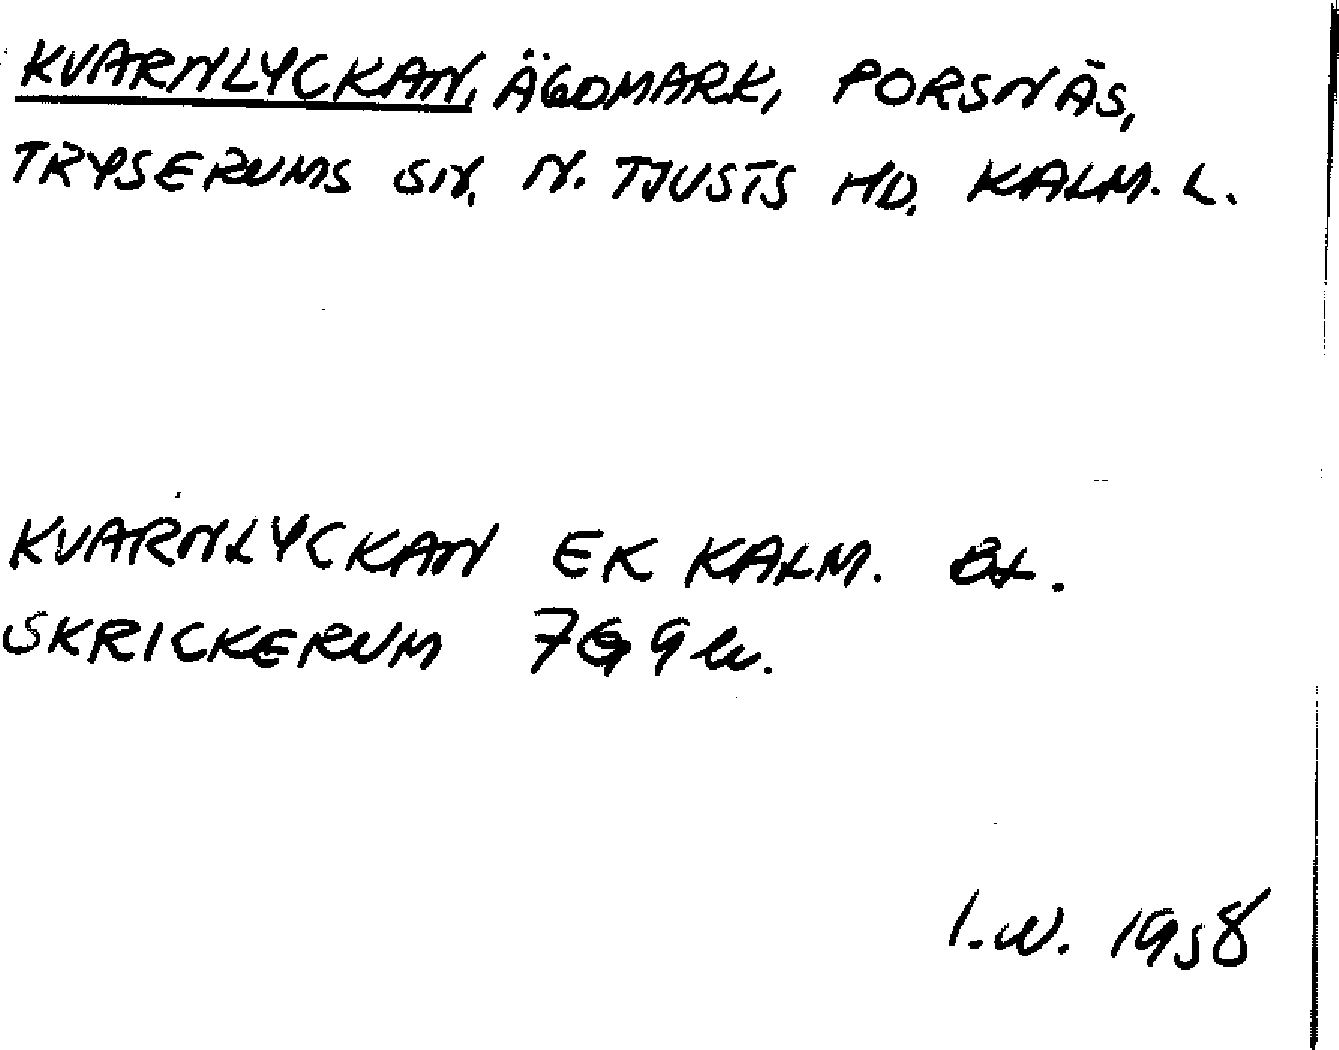 KVARNLYCKAN, ÄGOMARK, PORSNÄS,
TRYSERUMS SN, N. TJUSTS HD, KALM. L.
KVARNLYCKAN EK KALM. BL.
SKRICKERUM 7G 9
I.W. 1958